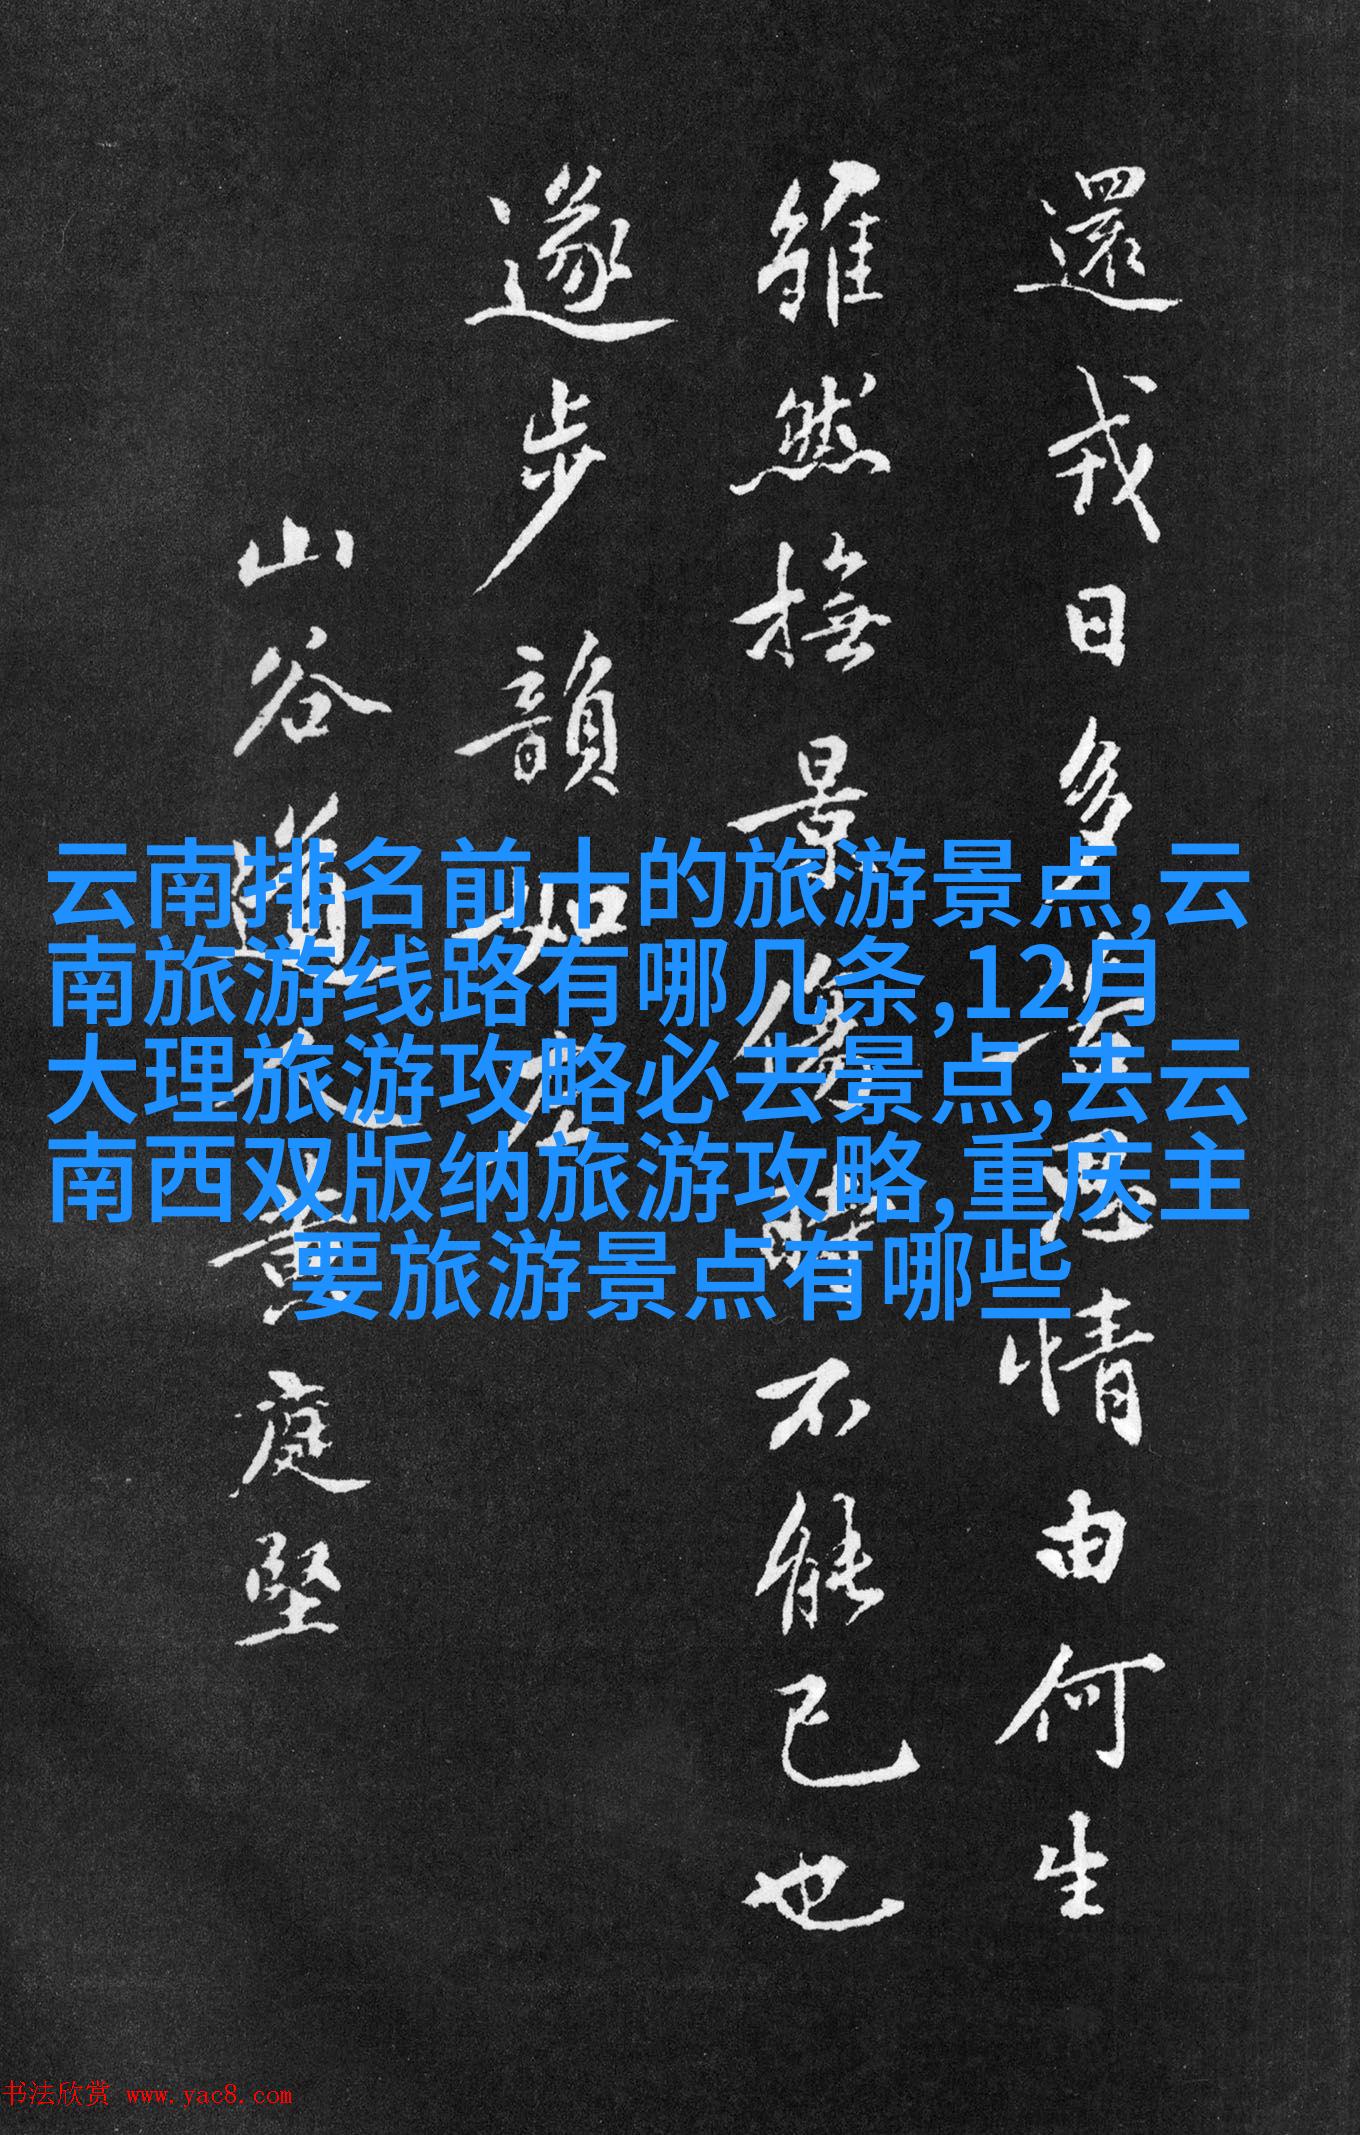 還戎日多情由何生
雖然撫景傷時不能已也
遂步韻如左
山谷道人黃庭堅
云南排名前十的旅游景点,云
南旅游线路有哪几条,12月
大理旅游攻略必去景点,去云
南西双版纳旅游攻略,重庆主
要旅游景点有哪些
书法欣赏 www.yac8.com